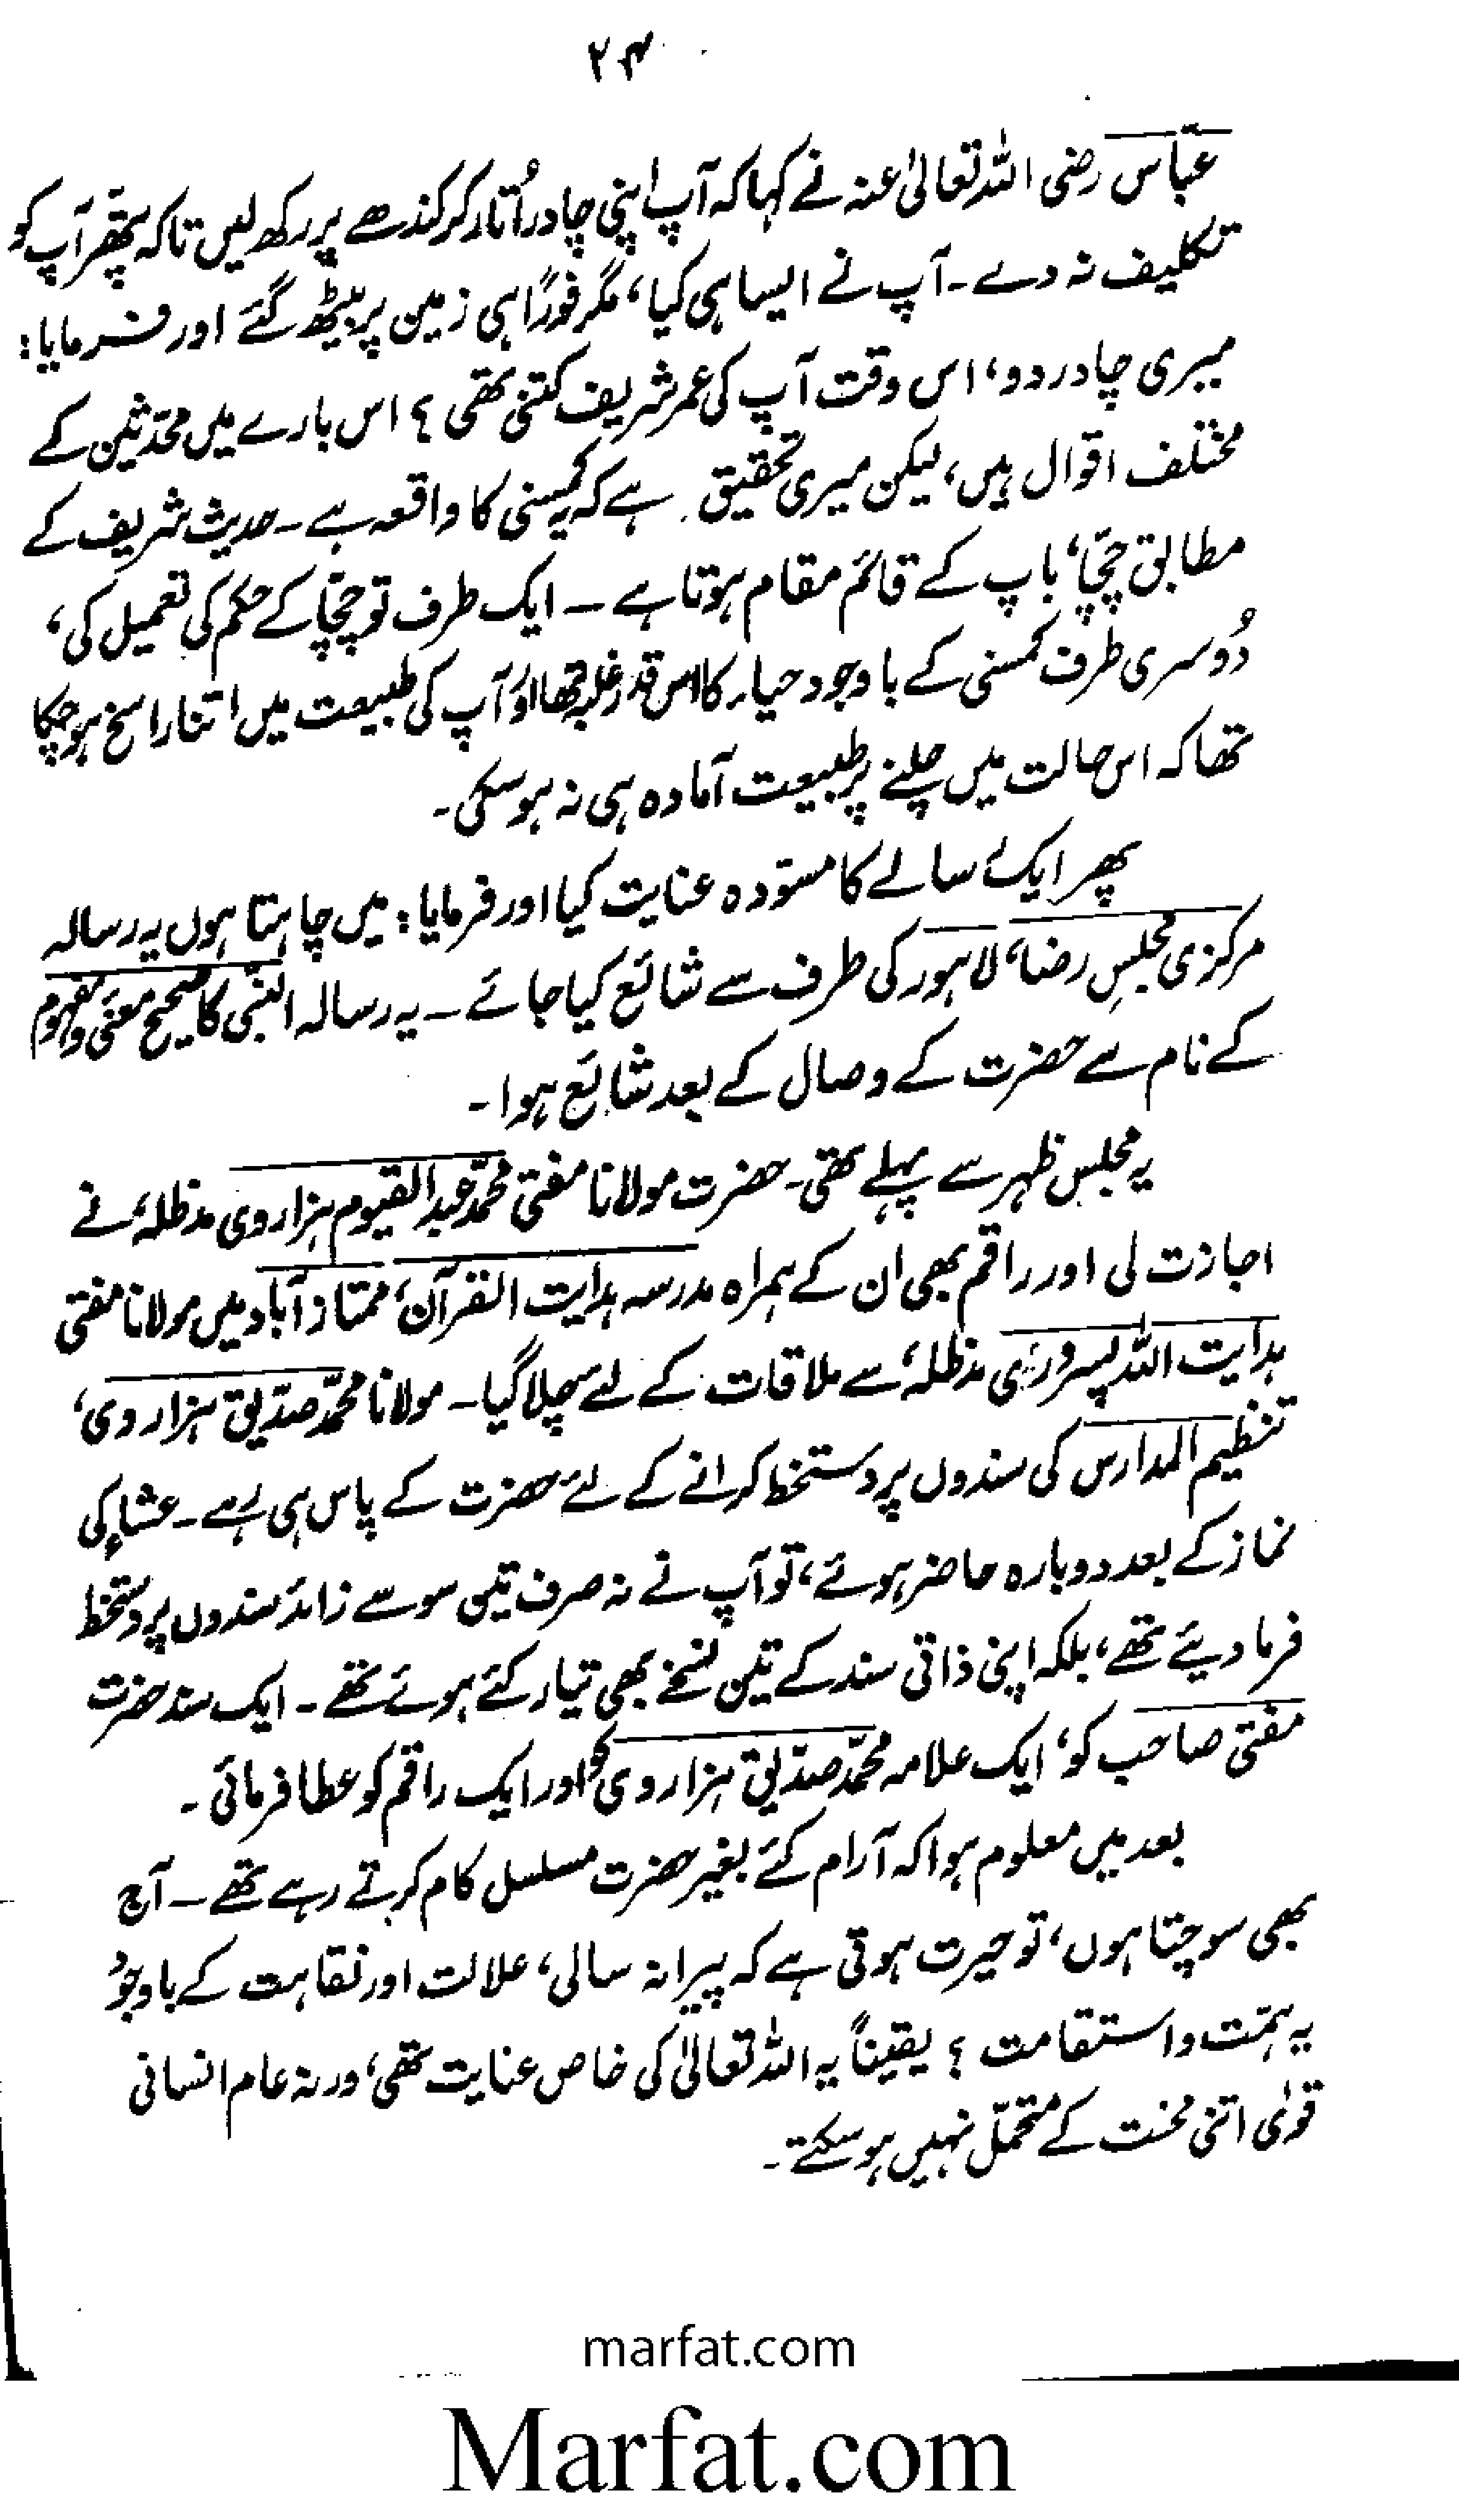 ۲۴
عبّاس رضی اللہ تعالیٰ عنہ نے کہا کہ آپ اپنی چادر اُتار کر کندھے پر رکھ لیں تاکہ پتھر آپ کو
تکلیف نہ دے۔ آپ نے ایسا ہی کیا، مگر فورًا ہی زمین پر بیٹھ گئے اور فرمایا:
میری چادر دو، اس وقت آپ کی عمر شریف کتنی تھی؟ اس بارے میں محدّثین کے
مختلف اقوال ہیں، لیکن میری تحقیق ہے کہ یہ کمسنی کا واقعہ ہے۔ حدیث شریف کے
مطابق چچّا، باپ کے قائم مقام ہوتا ہے ۔ ایک طرف تو چچّا کے حکم کی تعمیل کی،
دُوسری طرف کمسنی کے باوجود حیاء کا اس قدر غلبہ تھا اور آپ کی طبیعت میں اتنا راسخ ہو چکا
تھا کہ اس حالت میں چلنے پر طبیعت آمادہ ہی نہ ہو سکی۔
پھر ایک رسالے کا مسوّدہ عنایت کیا اور فرمایا: میں چاہتا ہوں یہ رسالہ
مرکزی مجلسِ رضا، لاہور کی طرف سے شائع کیا جائے ۔ یہ رسالہ النبّی کا صحیح معنیٰ و مفہوم
کے نام سے حضرت کے وصال کے بعد شائع ہوا۔
یہ مجلس ظہر سے پہلے تھی۔ حضرت مولانا مفتی محمّد عبدالقیوم ہزاروی مدظلہٗ نے
اجازت لی اور راقم بھی ان کے ہمراہ مدرسہ ہدایت القرآن، ممتاز آباد میں مولانا مفتی
ہدایت اللہ پسروری مدظلہٗ سے ملاقات کے لئے چلا گیا۔ مولانا محمّد صدّیق ہزاروی،
تنظیم المدارس کی سندوں پر دستخط کرانے کے لئے حضرت کے پاس ہی رہے۔ عشاء کی
نماز کے بعد دوبارہ حاضر ہوئے، تو آپ نے نہ صرف تین سو سے زائد سندوں پر دستخط
فرما دیئے تھے، بلکہ اپنی ذاتی سند کے تین نسخے بھی تیار کئے ہوئے تھے۔ ایک سند حضرت
مفتی صاحب کو، ایک علامہ محمّد صدّیق ہزاروی کو اور ایک راقم کو عطا فرمائی۔
بعد میں معلوم ہوا کہ آرام کئے بغیر حضرت مسلسل کام کرتے رہے تھے ۔ آج
بھی سوچتا ہوں، تو حیرت ہوتی ہے کہ پیرانہ سالی، علالت اور نقاہت کے باوجود
یہ ہمّت و استقامت؟ یقینًا یہ اللہ تعالیٰ کی خاص عنایت تھی، ورنہ عام انسانی
قویٰ اتنی محنت کے متحمّل نہیں ہو سکتے۔
marfat.com
Marfat.com